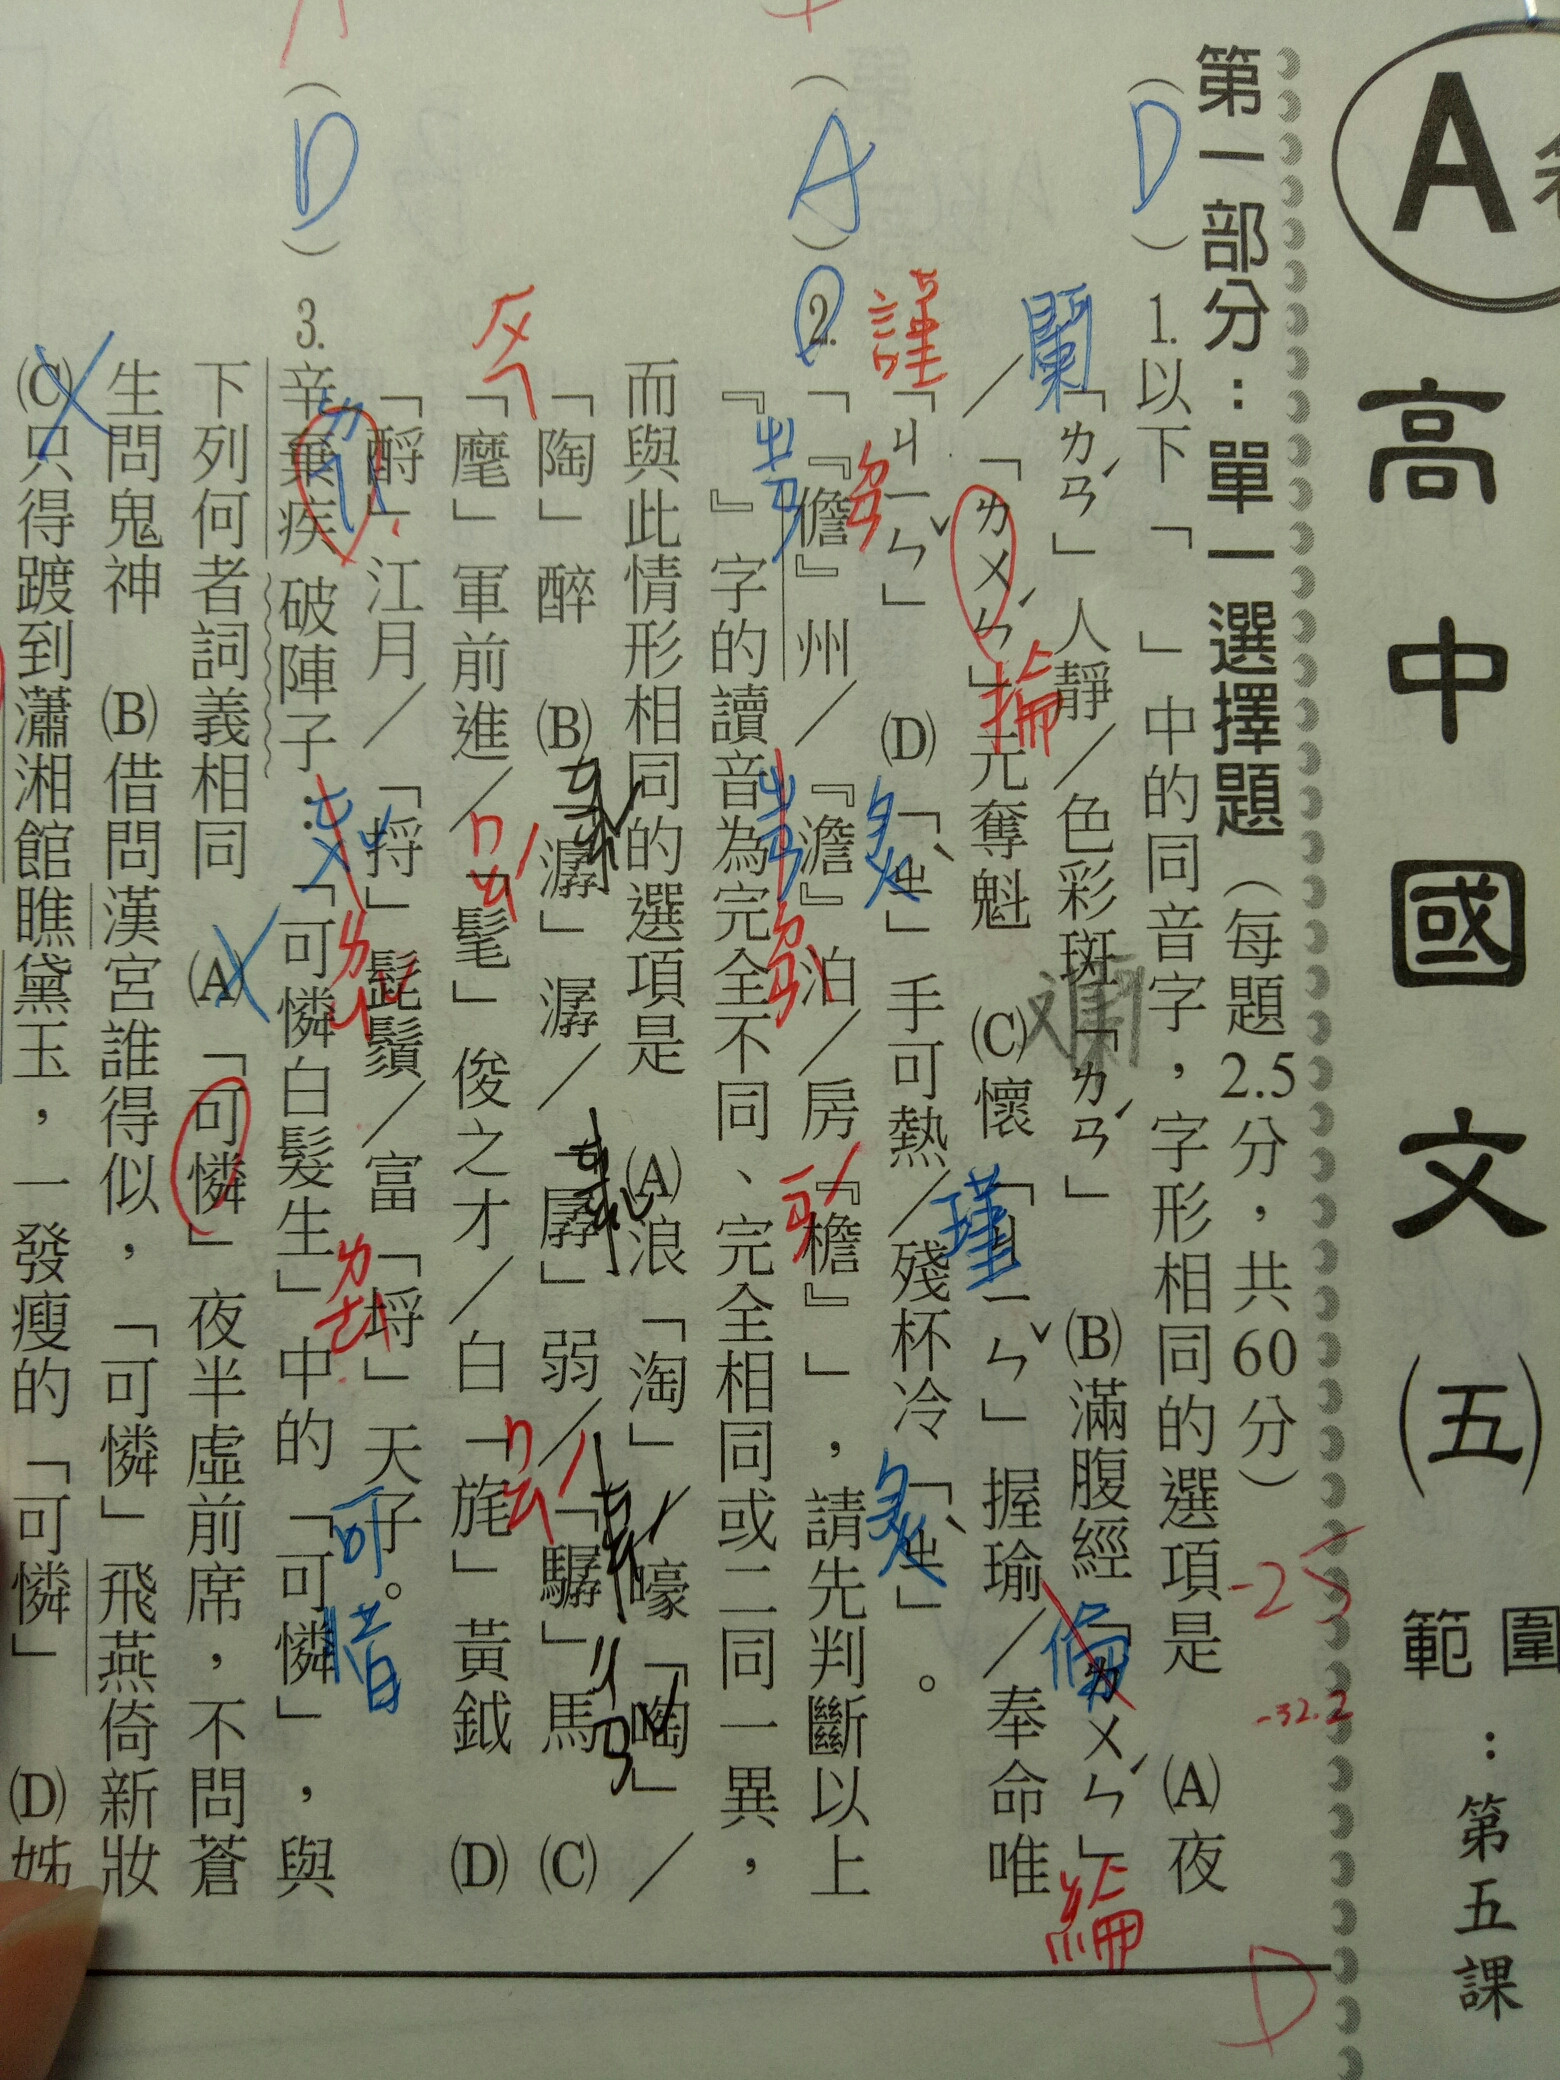 A
高中國文(五)
範圍:第五課
第一部分:單一選擇題(每題2.5分,共60分)
(D)1.以下「 」中的同音字,字形相同的選項是 (A)夜
「ㄌㄢˊ」人靜/色彩斑「ㄌㄢˊ」 (B)滿腹經「ㄌㄨㄣˊ」
/「ㄌㄨㄣˊ」元奪魁 (C)懷「ㄐㄧㄣˇ」握瑜/奉命唯
「ㄐㄧㄣˇ」 (D)「ㄓˋ」手可熱/殘杯冷「ㄓˋ」。
(A)2.「『儋』州/『澹』泊/房『檐』」,請先判斷以上
『 』字的讀音為完全不同、完全相同或二同一異,
而與此情形相同的選項是 (A)浪「淘」/嚎「啕」/
「陶」醉 (B)「潺」潺/「孱」弱/「驏」馬 (C)
「麾」軍前進/「髦」俊之才/白「旄」黃鉞 (D)
「酹」江月/「捋」髭鬚/富「埒」天子。
(D)3.辛棄疾破陣子:「可憐白髮生」中的「可憐」,與
下列何者詞義相同 (A)「可憐」夜半虛前席,不問蒼
生問鬼神 (B)借問漢宮誰得似,「可憐」飛燕倚新妝
(C)只得踱到瀟湘館瞧黛玉,一發瘦的「可憐」 (D)姊
闌
斕
倫
綸
掄
瑾
謹
可惜
-25
-32.2
D